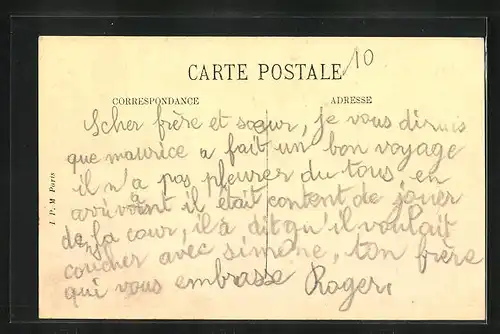 10
CARTE POSTALE
CORRESPONDANCE ADRESSE
Scher frère et sœur, je vous dirais
que maurice a fait un bon voyage
il n'a pas pleurer du tous en
arrivant il était content de jouer
dans la cour, il à dit qu'il voulait
coucher avec simone, ton frère
qui vous embrasse Roger,
I. P. M Paris